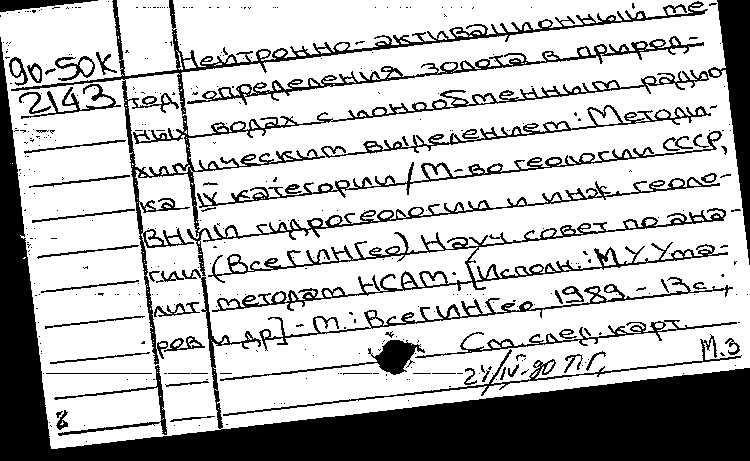 90-50К
2143
Нейтронно-активационный ме-
тод определения золота в природ-
ных водах с ионообменным радио-
химическим выделением: Методи-
ка IV категории / М-во геологии СССР,
ВНИИ гидрогеологии и инж. геоло-
гии (ВсеГИНГео). Науч. совет по ана-
лит. методам НСАМ; [Исполн.: М.У.Ума-
ров и др] - М.: ВсеГИНГео, 1989. - 13с.;
См. след. карт.
24/IV-90 П.Г,
М.З